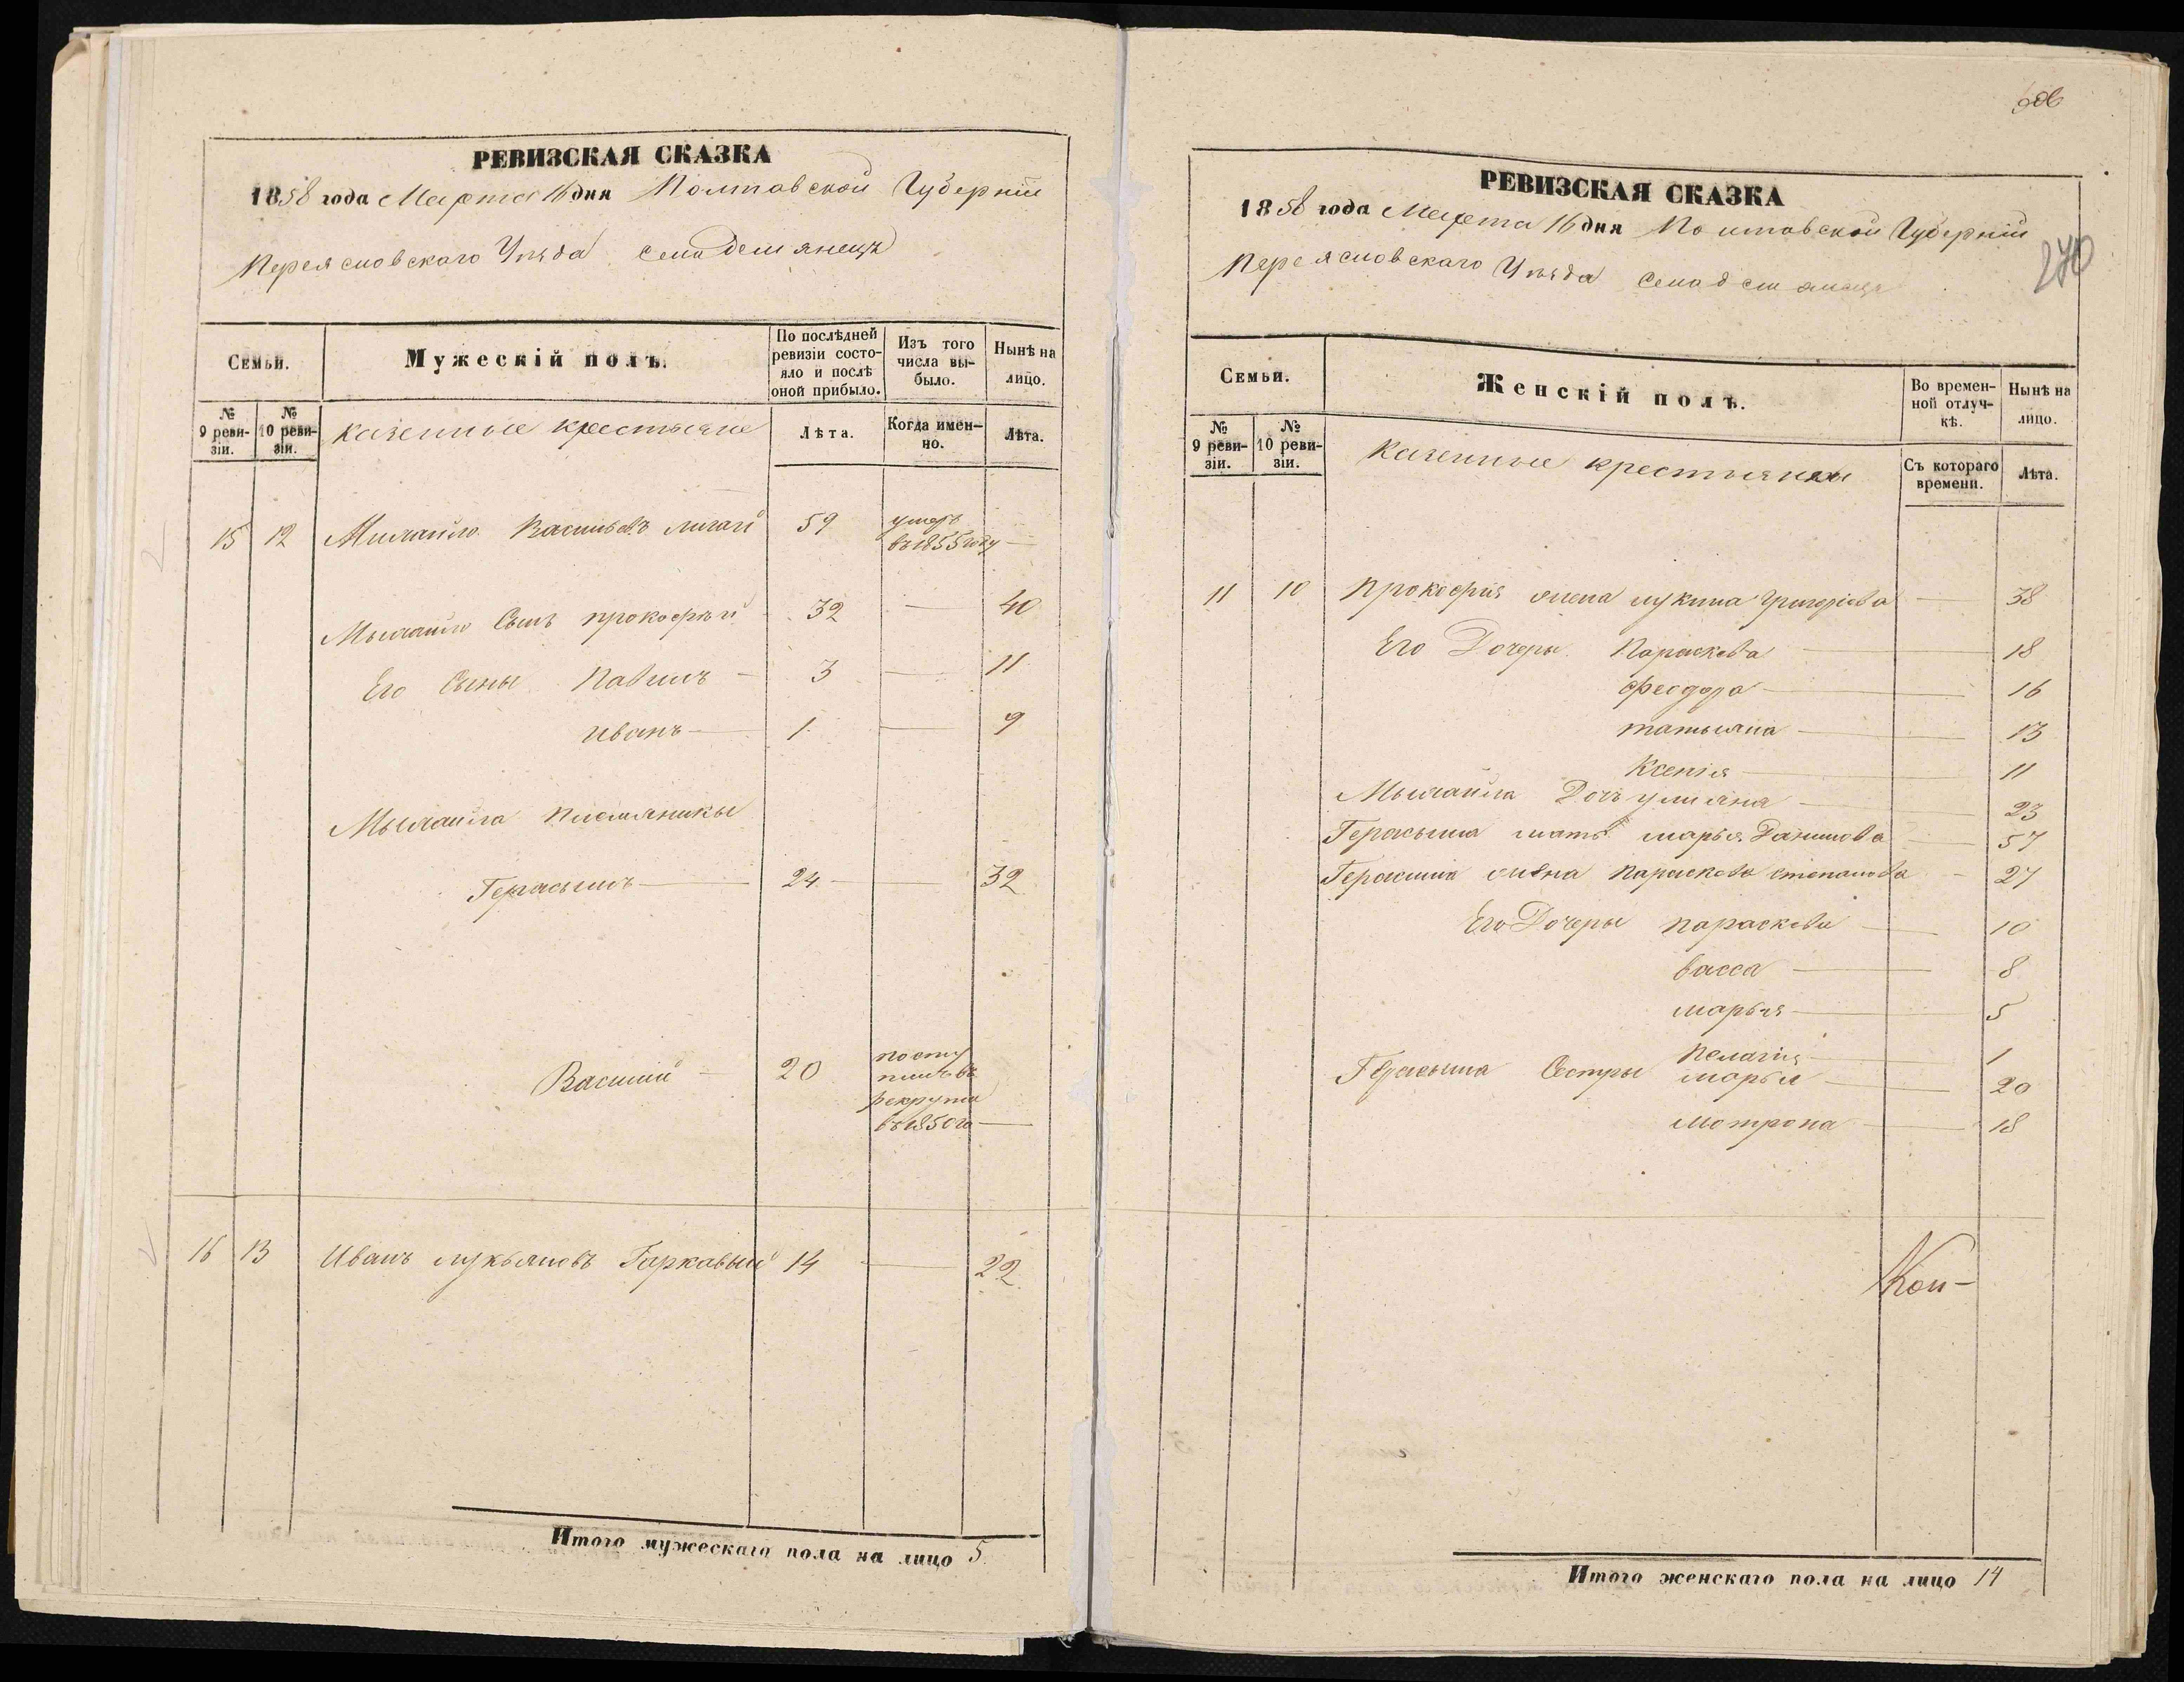 РЕВИЗСКАЯ СКАЗКА
1858 года Марта 16 дня Полтавской Губерніи
Переясловскаго Уѣзда Села Демянецъ
Семьи.
Мужескій полъ.
По послѣдней ревизіи состояло и послѣ оной прибыло.
Изъ того числа выбыло.
Нынѣ на лицо.
№ 9 ревизіи.
№ 10 ревизіи.
Казенные крестьяне
Лѣта.
Когда именно.
Лѣта.
15 12 Михайло Васильевъ 59 умеръ
въ 1855 году —
Михайла Сынъ прокофѣй 32 — 40
Его Сыны Павелъ — 3 — 11
Иванъ — 1 — 9
Мыхайла племяникы
Герасымъ — 24 — 32
Василий — 20 посту
пилъ въ
рекруты
въ 1850 го —
16 13 Иванъ лукьяновъ Гаркавый 14 — 22
Итого мужескаго пола на лицо 5.
606
270
РЕВИЗСКАЯ СКАЗКА
1858 года Марта 16 дня Полтавской Губерніи
Переясловскаго Уѣзда Села Демянецъ
Семьи.
Женскій полъ.
Во временной отлучкѣ.
Нынѣ на лицо.
№ 9 ревизіи.
№ 10 ревизіи.
Казенные крестьянки
Съ котораго времени.
Лѣта.
11 10 Прокофия жена лукина Григоріева — 38
Его Дочеры Параскева — 18
Феодора — 16
татьяна — 13
Ксенія — 11
Мыхайла Дочь улияна — 23
Герасыма мать марья Данилова — 57
Герасима жена Параскева степанова — 27
Его Дочеры параскева — 10
васса — 8
марья — 5
пелагия — 1
Герасыма Сестры марья — 20
мотрона — 18
Итого женскаго пола на лицо 14